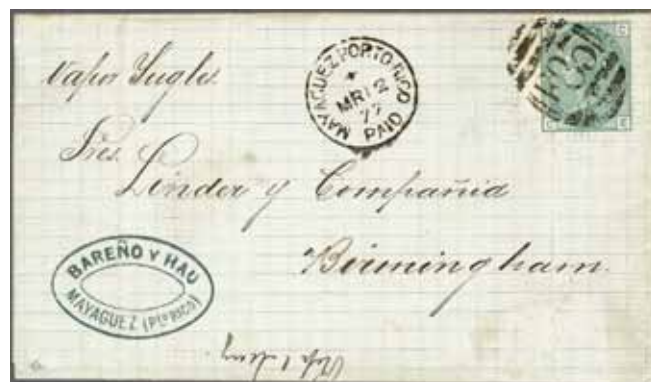 Vapor Ingles.
MAYAGUEZ PORTO-RICO
MR 12
77
PAID
Sres.
Linder y Compañia
Birmingham.
BAREÑO Y HAU
MAYAGUEZ (Pto RICO)
F85
C
C
E